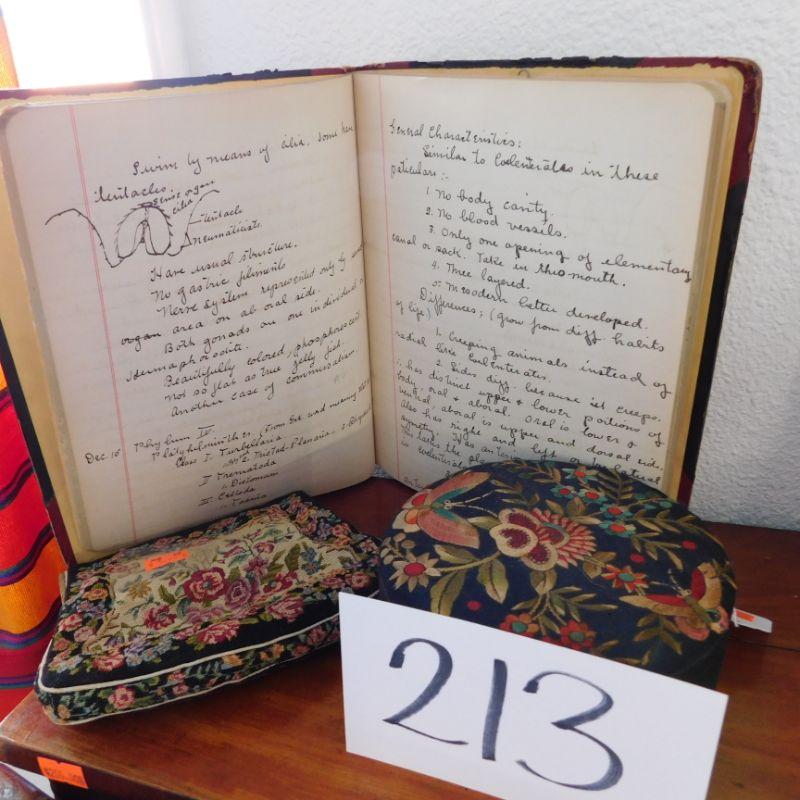 Swim by means of cilia. Some have
tentacles.
sense organ
cilia
tentacle
Neumaticists
Have usual structure.
No gastric filaments
Nerve system represented only by sense
organ area on ab oral side.
Both gonads on one individual
Hermaphrodite.
Beautifully colored, phosphorescent
not so flat as true jelly fish.
Another case of commensalism.
Dec. 16 Phylum IV.
Platyhelminthes (From Grk. word meaning
Class I. Turbellaria
Planaria
II Trematoda
" Distomum
III Cestoda
" Taenia
General Characteristics:
Similar to Coelenterates in these
paticulars:-
1. No body cavity.
2. No blood vessils.
3. Only one opening of elementary
canal or sack. Take in thro mouth.
4. Three layered.
5. Mesoderm better developed.
Differences; (Grow from diff. habits
of life)
1. Creeping animals instead of
radial like Coelenterates.
2. Sides diff. because it creeps.
∴ has distinct upper & lower portions of
body, oral & aboral. Oral is lower &
ventral, aboral is upper and dorsal side.
Also has right and left or bilateral
symetry.
in coelenterates
213